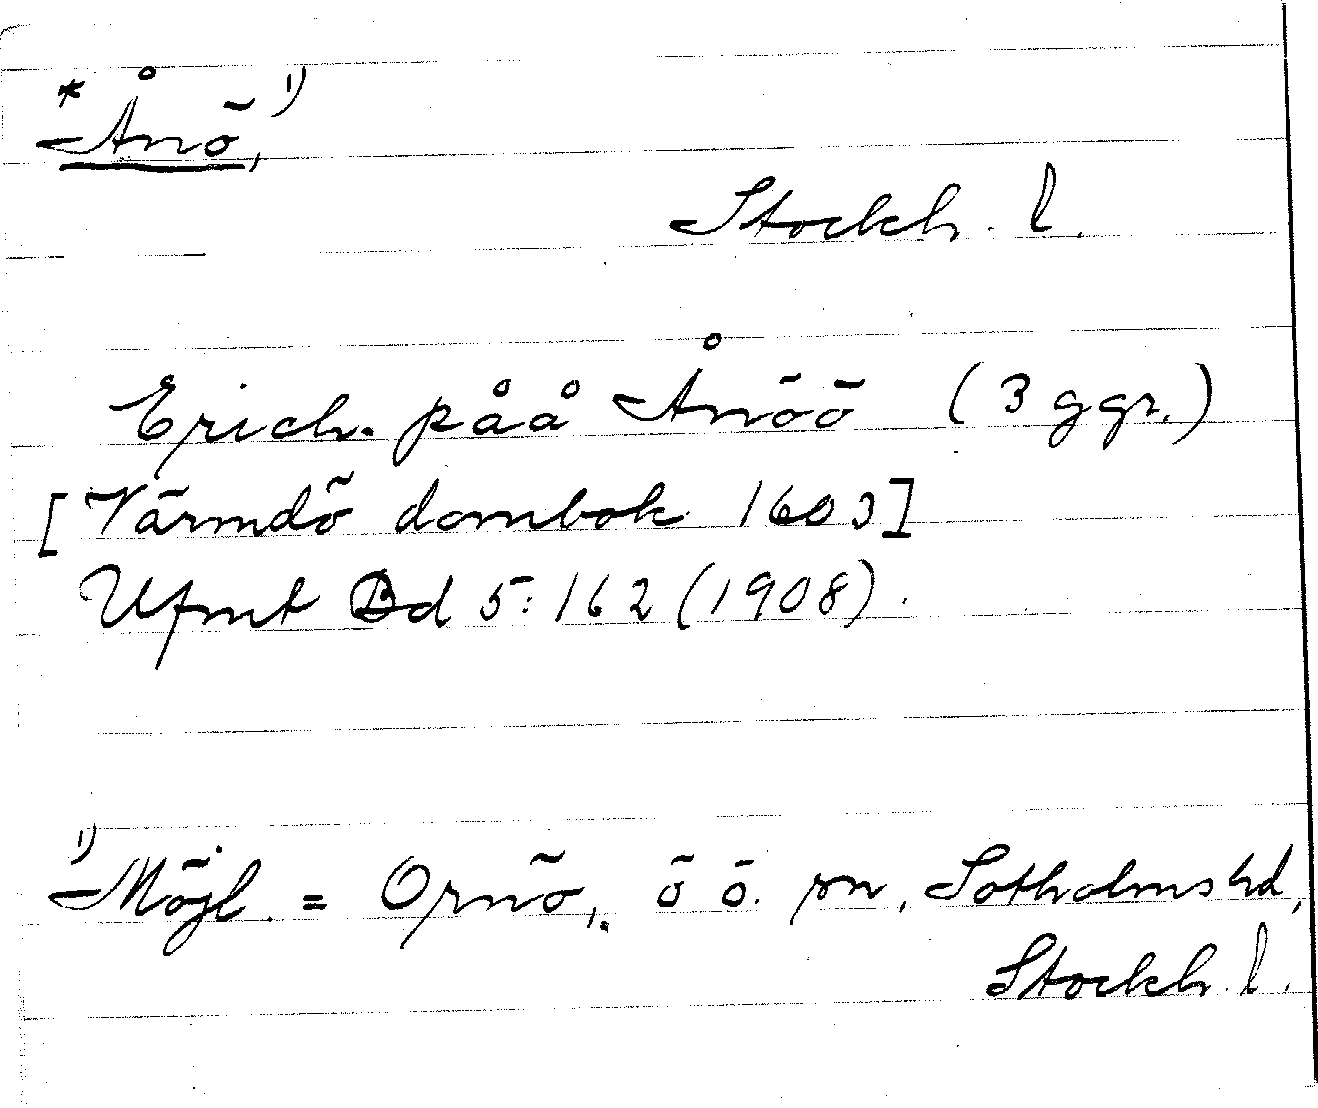 *Ånö,¹⁾
Stockh. l.
Erich. påå Ånöö (3 ggr.)
[Värmdö dombok 1603]
Ufmt Bd 5:162 (1908).
¹⁾Möjl. = Ornö, ö ö. sn, Sotholms hd,
Stockh. l.